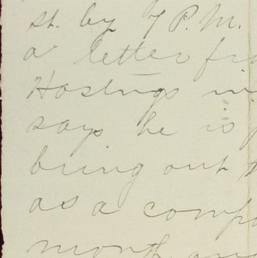 st. by 7 P.M.
a letter fr
Hastings in
says he is
bring out
as a comp
month an